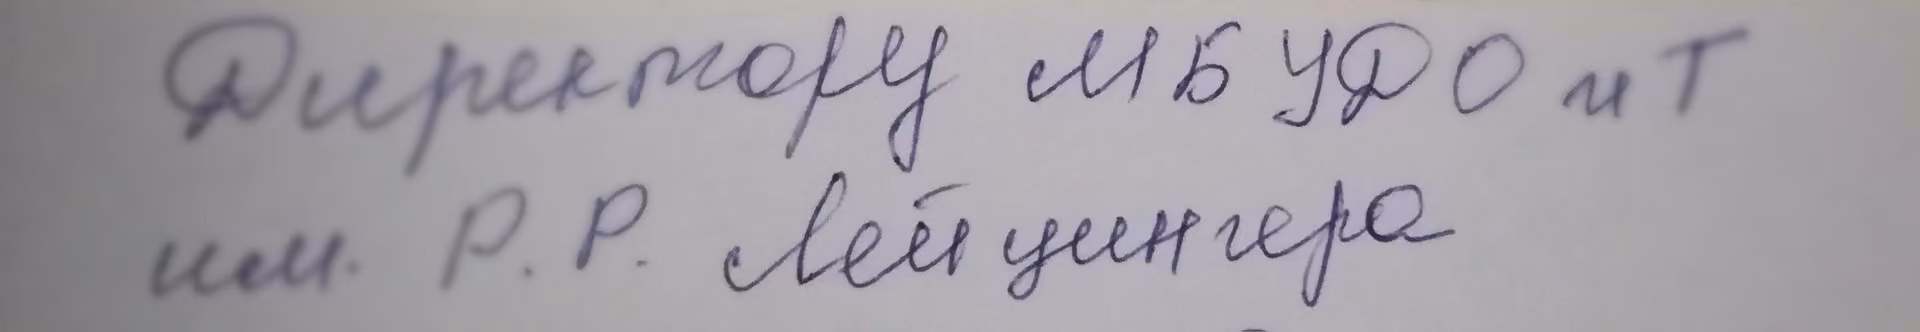 Директору МБУДО ЦТ
им. Р.Р. Лейцингера